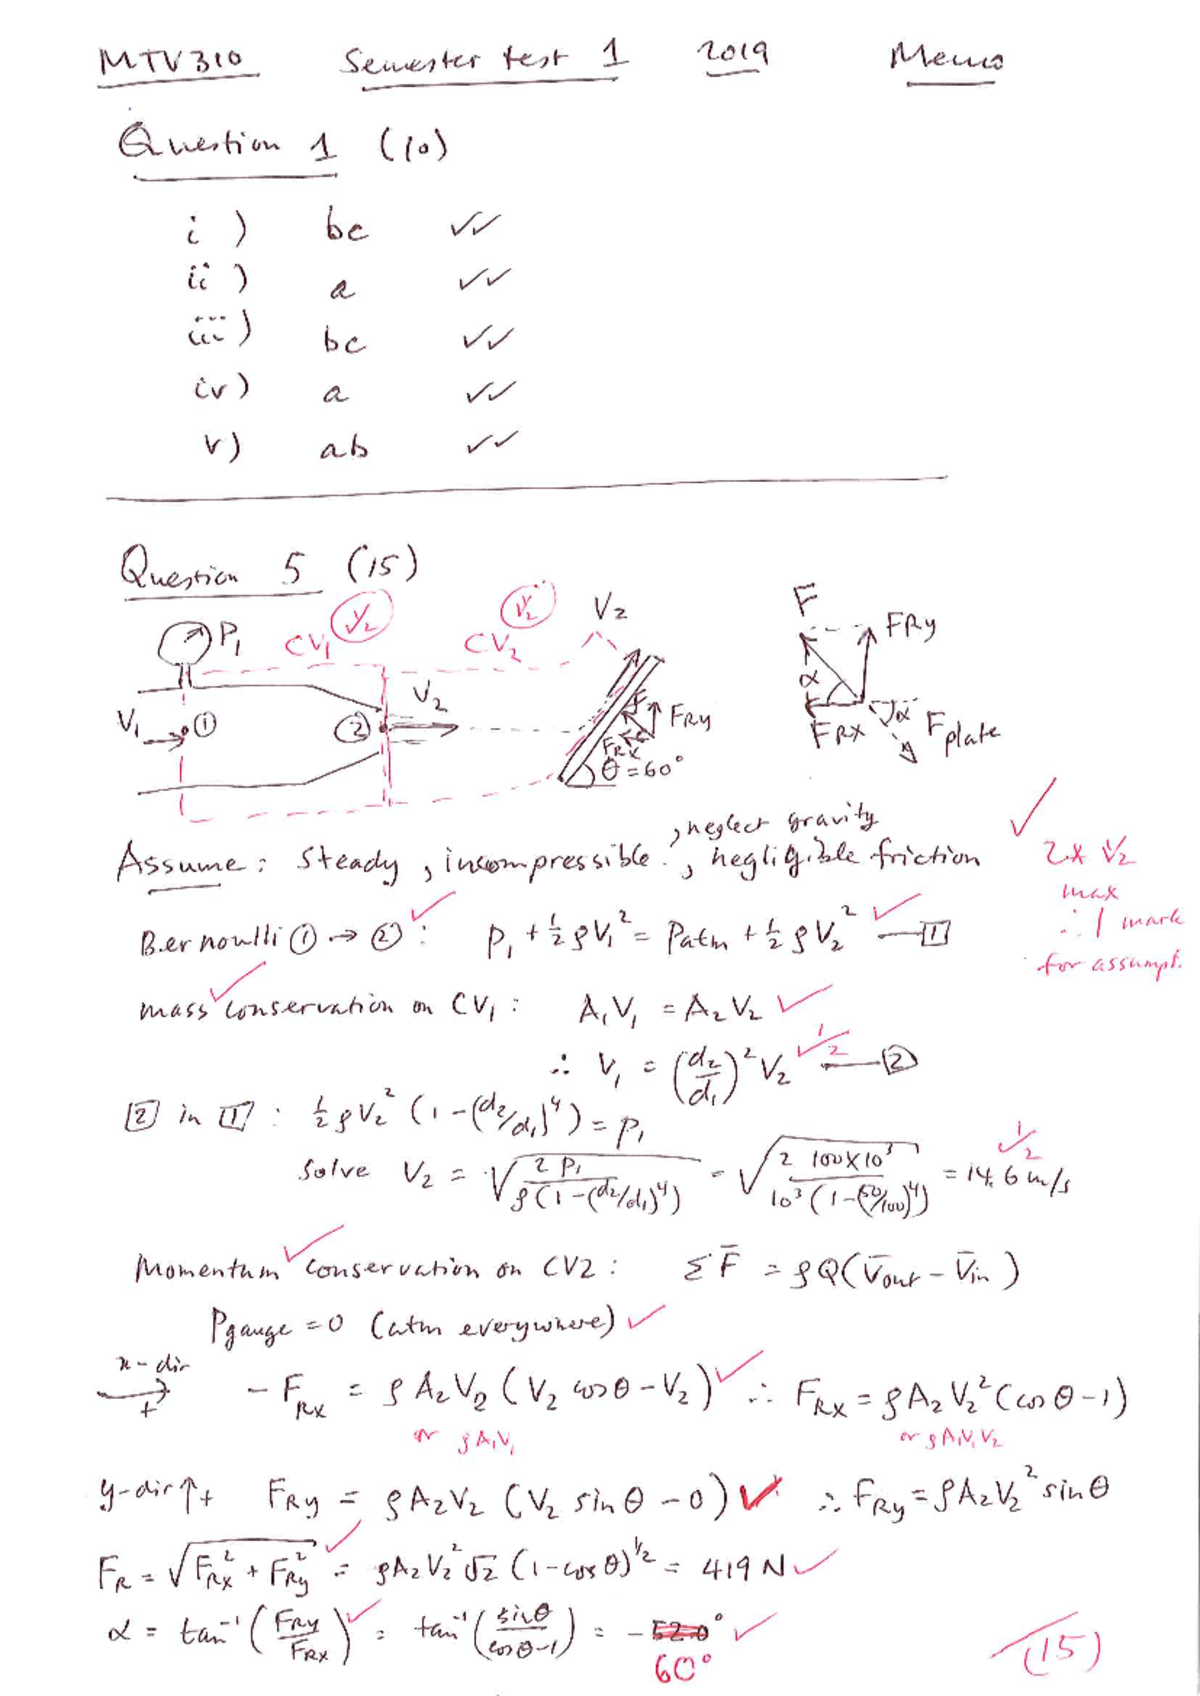 MTV310 Semester test 1 2019 Memo
Question 1 (10)
i) bc ✓✓
ii) a ✓✓
iii) bc ✓✓
iv) a ✓✓
v) ab ✓✓
Question 5 (15)
P₁ CV₁ ½ CV₂ ½ V₂
V₁ ① ② V₂ F FRy FRx θ = 60°
F FRy α FRx α Fplate
, neglect gravity
Assume: Steady, incompressible, negligible friction ✓ 2x ½
max
∴ 1 mark
for assumpt.
Bernoulli ① → ② : ✓ P₁ + ½ρV₁² = Patm + ½ρV₂² ✓ — [1]
mass ✓ conservation on CV₁ : A₁V₁ = A₂V₂ ✓
∴ V₁ = (d₂/d₁)² V₂ ✓½ — [2]
[2] in [1] : ½ρV₂² (1 - (d₂/d₁)⁴) = P₁
Solve V₂ = √(2 P₁ / ρ(1 - (d₂/d₁)⁴)) = √(2 100×10³ / 10³(1 - (50/100)⁴)) = 14.6 m/s ✓½
Momentum ✓ conservation on CV2 : Σ F̄ = ρQ(V̄out - V̄in)
Pgauge = 0 (atm everywhere) ✓
x-dir → + - FRx = ρA₂V₂ (V₂ cosθ - V₂) ✓ ∴ FRx = ρA₂V₂² (cosθ - 1)
or ρA₁V₁ or ρA₁V₁V₂
y-dir ↑+ FRy = ρA₂V₂ (V₂ sinθ - 0) ✓ ∴ FRy = ρA₂V₂² sinθ
FR = √(FRx² + FRy²) ✓ = ρA₂V₂² √2 (1 - cosθ)^½ = 419 N ✓
α = tan⁻¹ (FRy/FRx) ✓ = tan⁻¹ (sinθ/cosθ-1) = - ° ✓
60°
(15)